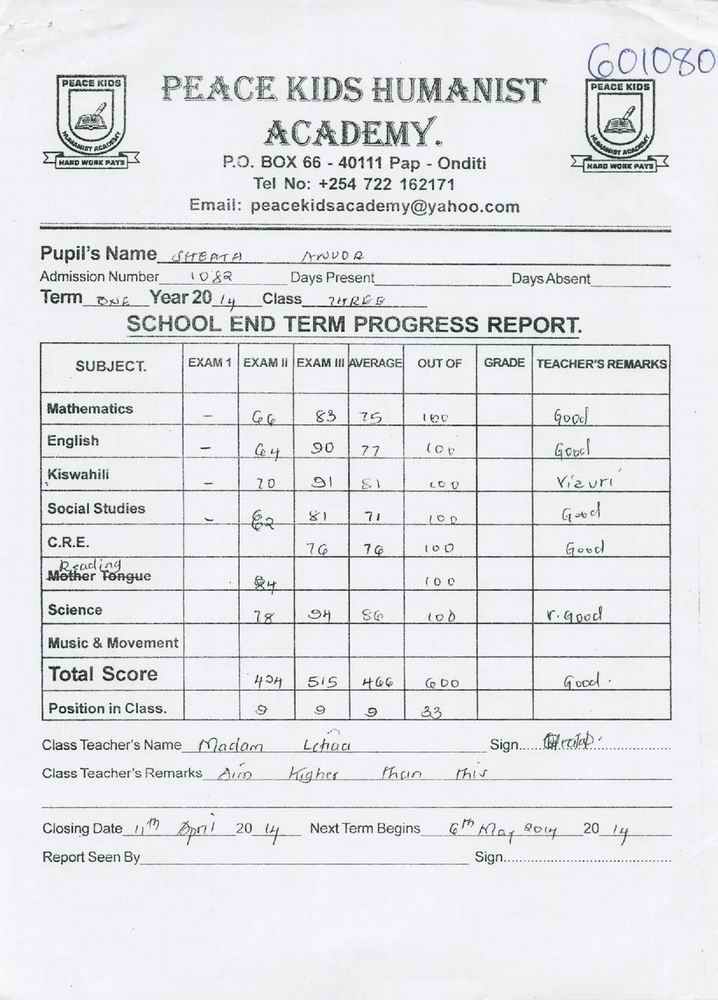 601080
PEACE KIDS
HUMANIST ACADEMY
HARD WORK PAYS
PEACE KIDS HUMANIST
ACADEMY.
P.O. BOX 66 - 40111 Pap - Onditi
Tel No: +254 722 162171
Email: peacekidsacademy@yahoo.com
PEACE KIDS
HUMANIST ACADEMY
HARD WORK PAYS
Pupil's Name
Admission Number 1082 Days Present Days Absent
Term ONE Year 20 14 Class THREE
SCHOOL END TERM PROGRESS REPORT.
SUBJECT. EXAM 1 EXAM II EXAM III AVERAGE OUT OF GRADE TEACHER'S REMARKS
Mathematics - 66 83 75 100 Good
English - 64 90 77 100 Good
Kiswahili - 70 91 81 100 Vizuri
Social Studies - 62 81 71 100 Good
C.R.E. 76 76 100 Good
Reading
Mother Tongue 84 100
Science 78 94 86 100 V. good
Music & Movement
Total Score 424 515 466 600 Good.
Position in Class. 9 9 9 33
Class Teacher's Name Madam Sign
Class Teacher's Remarks Aim Higher than this
Closing Date 11th April 20 14 Next Term Begins 6th May 2014 20 14
Report Seen By Sign